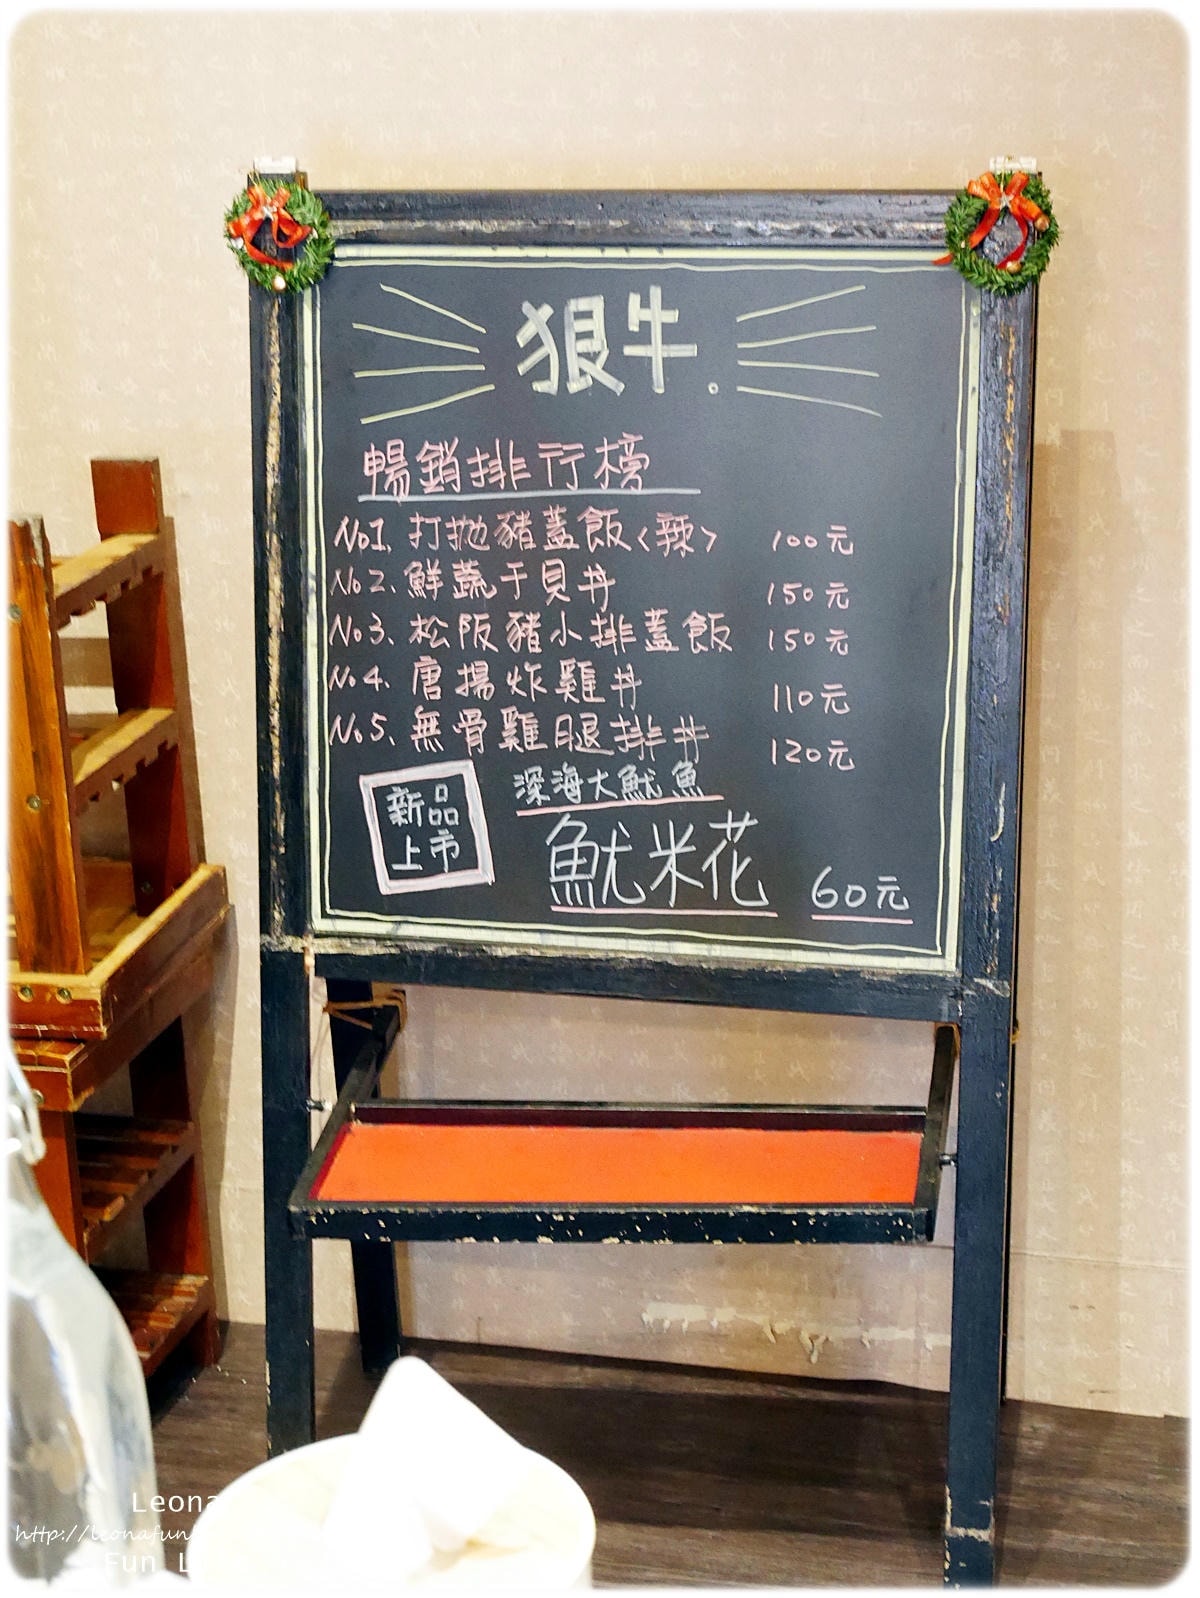 狠牛。
暢銷排行榜
No1. 打抛豬蓋飯<辣> 100元
No2. 鮮蔬干貝丼 150元
No3. 松阪豬小排蓋飯 150元
No4. 唐揚炸雞丼 110元
No5. 無骨雞腿排丼 120元
新品上市
深海大魷魚
魷米花 60元
Leona
http://leonafun
Fun L